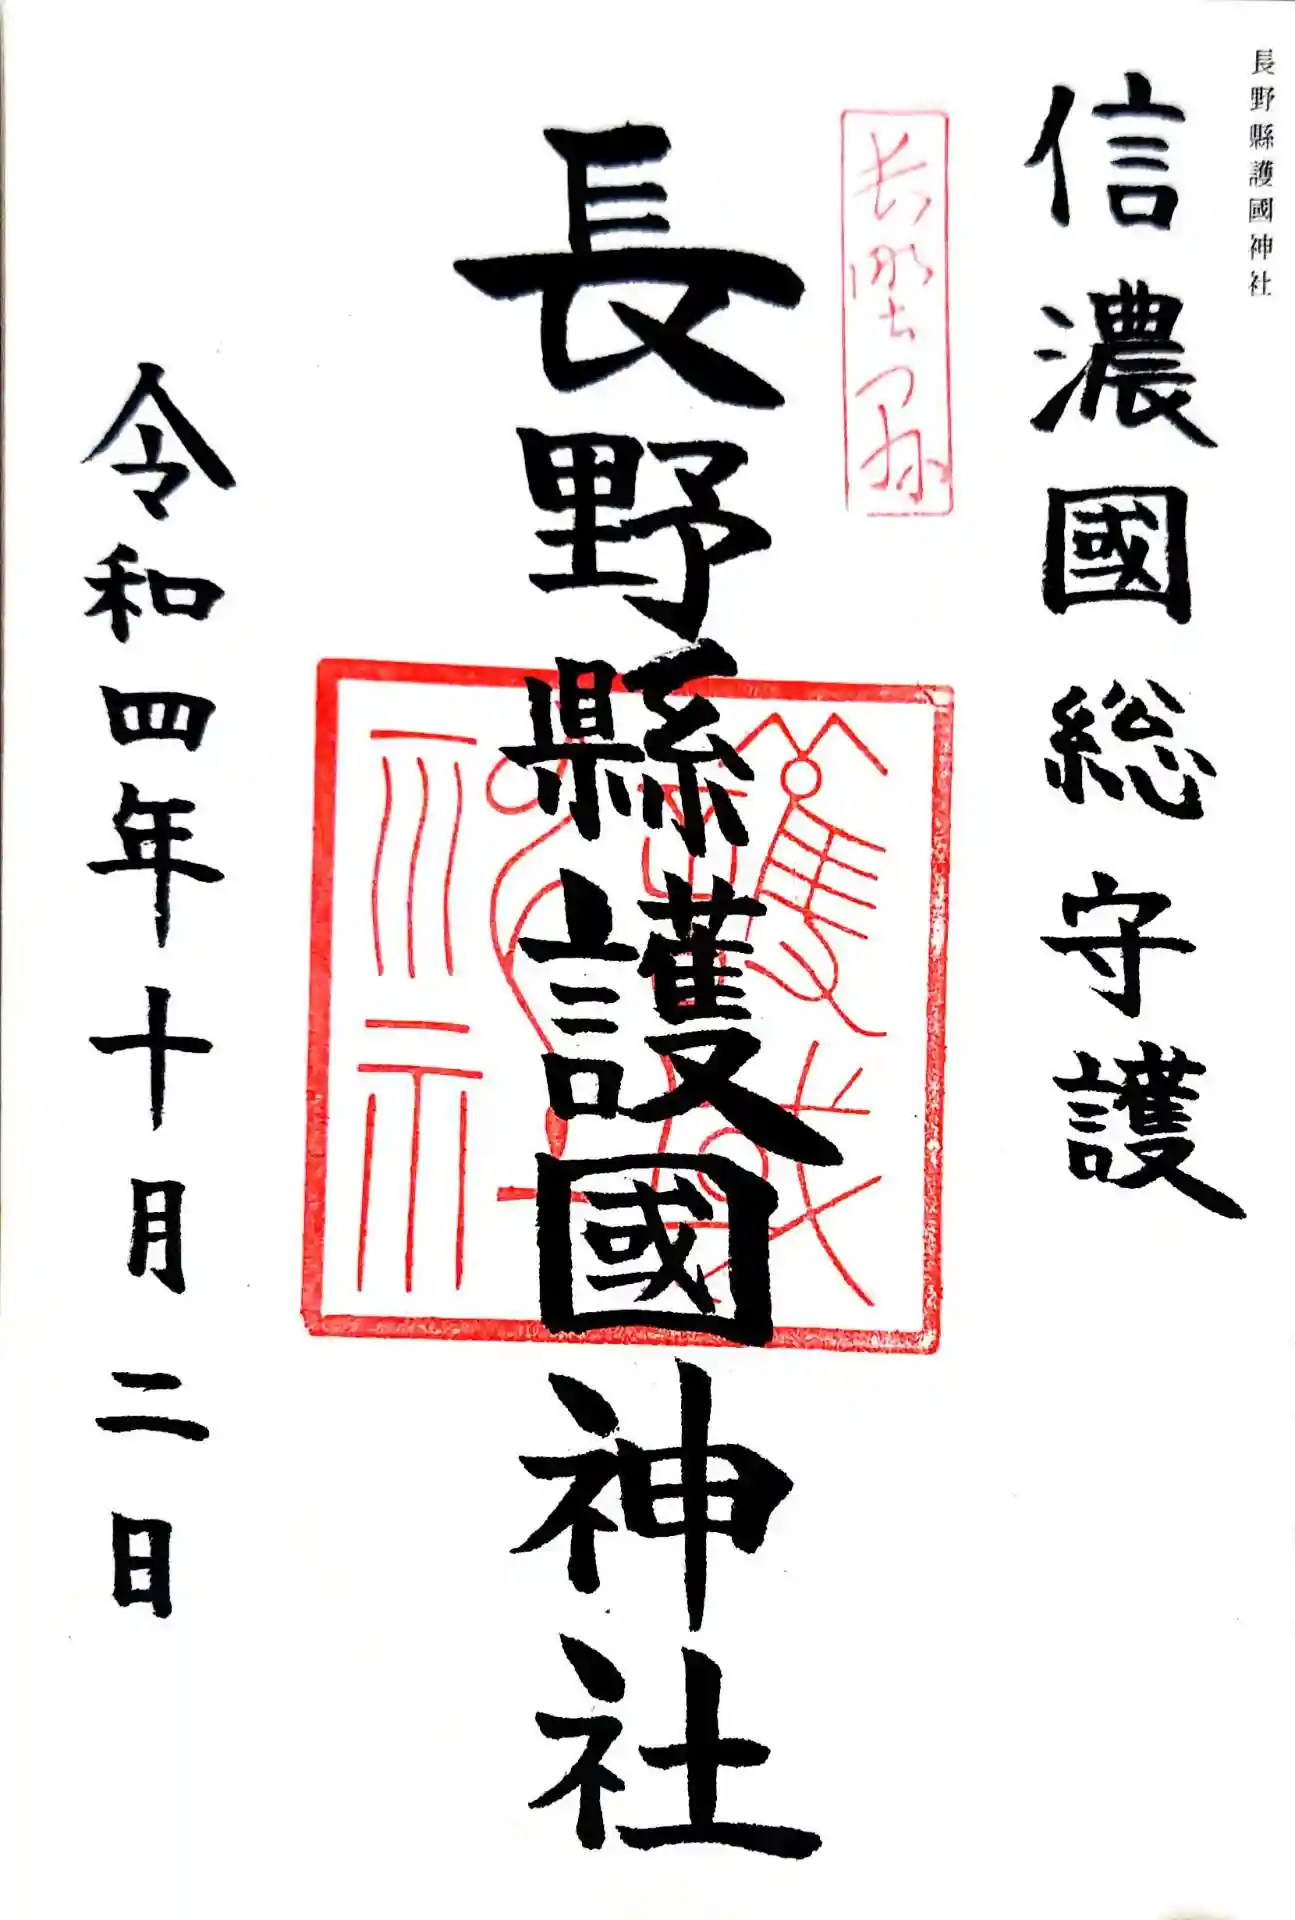 長野縣護國神社
信濃國総守護
長野縣
長野縣護國神社
令和四年十月二日